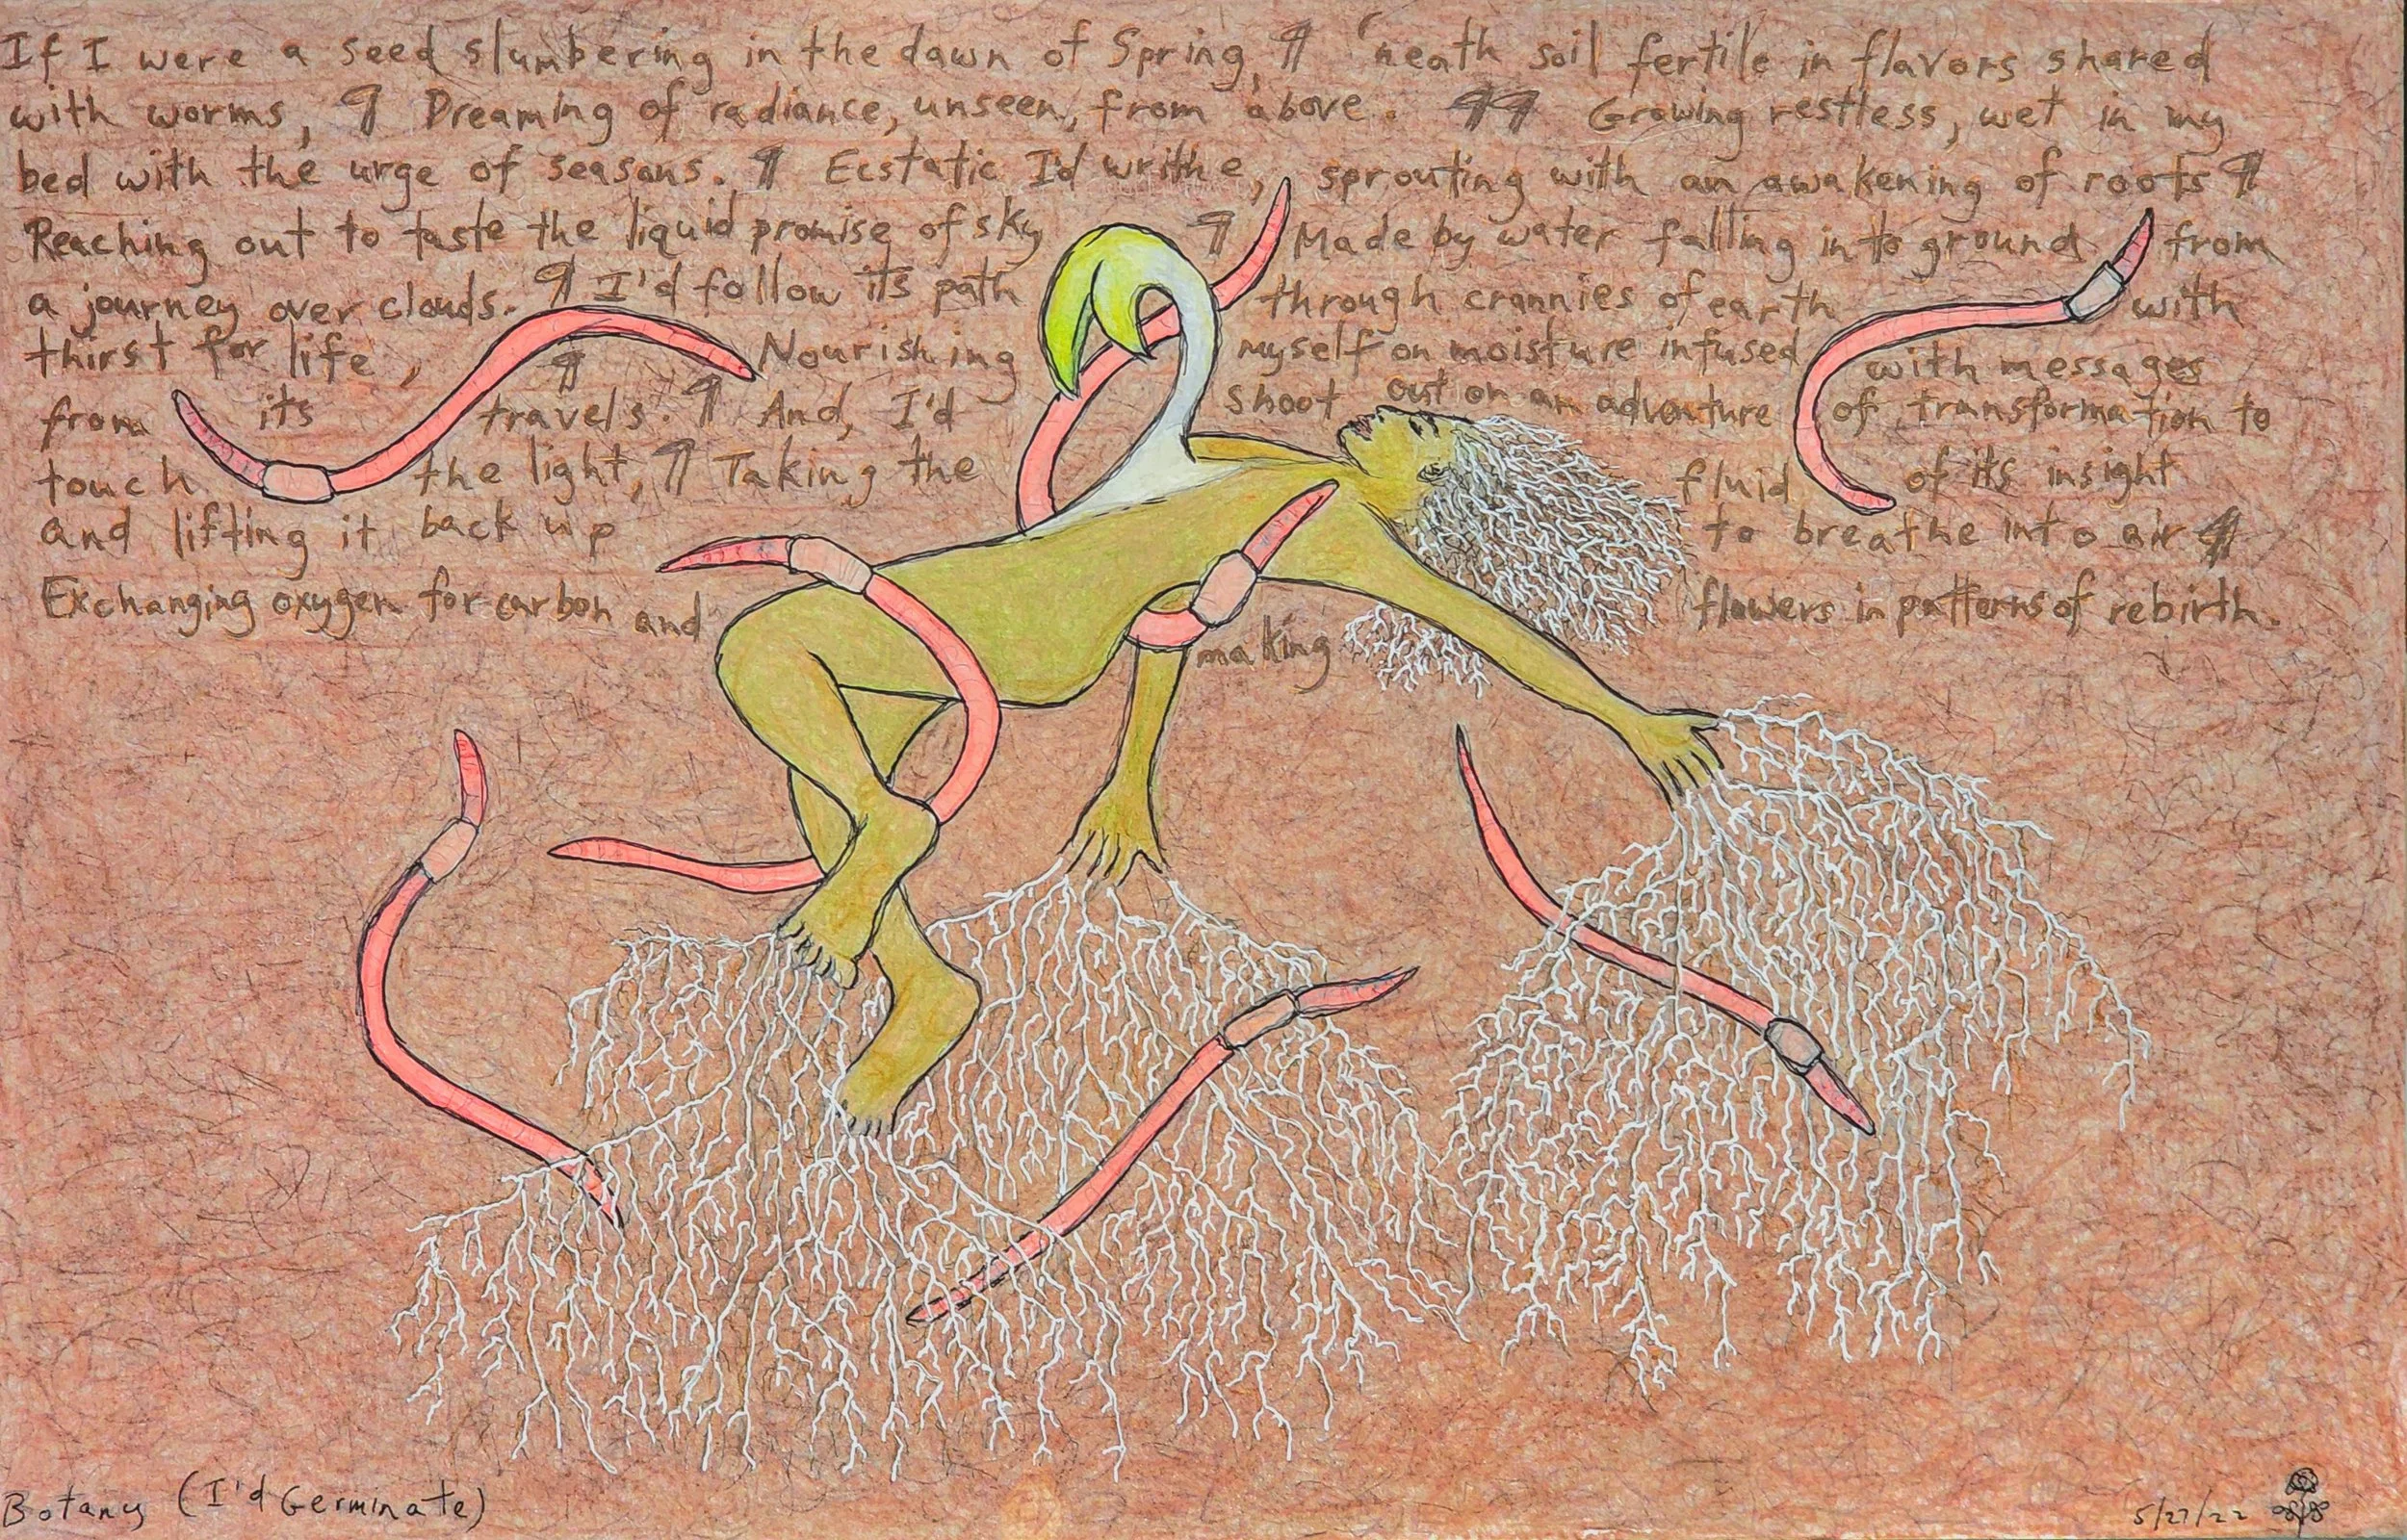 If I were a seed slumbering in the dawn of Spring, ¶ 'neath soil fertile in flavors shared
with worms, ¶ Dreaming of radiance, unseen, from above. ¶¶ Growing restless, wet in my
bed with the urge of seasons. ¶ Ecstatic I'd writhe, sprouting with an awakening of roots ¶
Reaching out to taste the liquid promise of sky ¶ Made by water falling into ground from
a journey over clouds. ¶ I'd follow its path through crannies of earth with
thirst for life, ¶ Nourishing myself on moisture infused with messages
from its travels. ¶ And, I'd shoot out on an adventure of transformation to
touch the light, ¶ Taking the fluid of its insight
and lifting it back up to breathe into air ¶
Exchanging oxygen for carbon and making flowers in patterns of rebirth.
Botany (I'd Germinate)
5/27/22